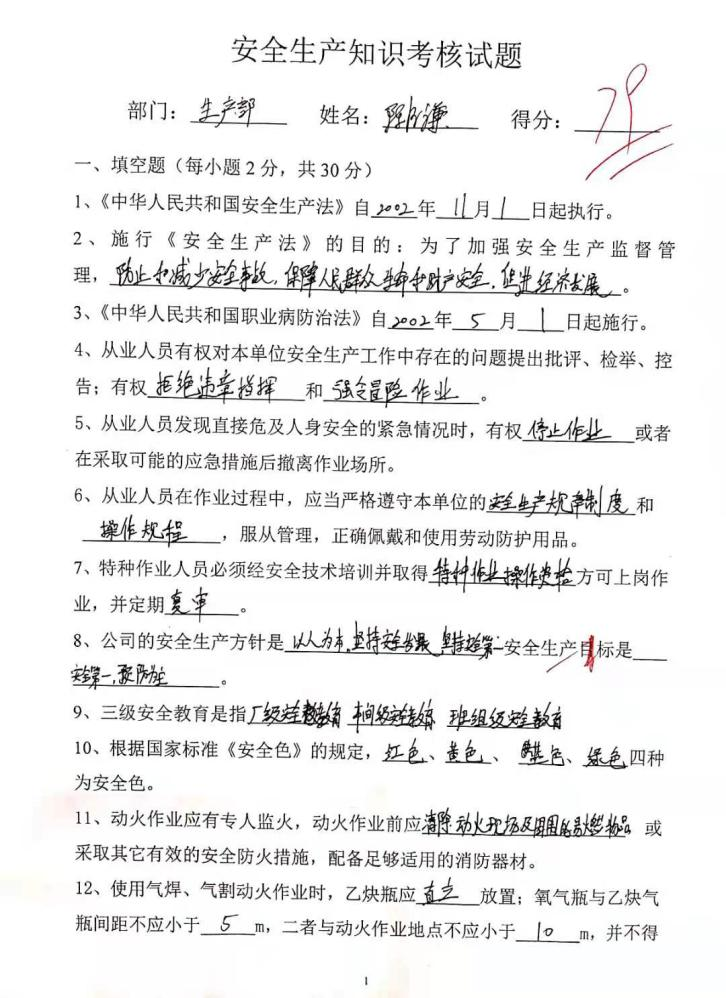 安全生产知识考核试题
部门：生产部 姓名： 得分：79
一、填空题（每小题2分，共30分）
1、《中华人民共和国安全生产法》自2002年11月1日起执行。
2、施行《安全生产法》的目的：为了加强安全生产监督管
理，防止和减少安全事故，保障人民群众生命和财产安全，促进经济发展。
3、《中华人民共和国职业病防治法》自2002年5月1日起施行。
4、从业人员有权对本单位安全生产工作中存在的问题提出批评、检举、控
告；有权拒绝违章指挥和强令冒险作业。
5、从业人员发现直接危及人身安全的紧急情况时，有权停止作业或者
在采取可能的应急措施后撤离作业场所。
6、从业人员在作业过程中，应当严格遵守本单位的安全生产规章制度和
操作规程，服从管理，正确佩戴和使用劳动防护用品。
7、特种作业人员必须经安全技术培训并取得特种作业操作资格方可上岗作
业，并定期复审。
8、公司的安全生产方针是以人为本，坚持安全发展 坚持安全第一安全生产目标是
安全第一，预防为主。
9、三级安全教育是指厂级安全教育 车间级安全教育 班组级安全教育
10、根据国家标准《安全色》的规定，红色、黄色、蓝色、绿色四种
为安全色。
11、动火作业应有专人监火，动火作业前应清除动火现场及周围的易燃物品 或
采取其它有效的安全防火措施，配备足够适用的消防器材。
12、使用气焊、气割动火作业时，乙炔瓶应直立放置；氧气瓶与乙炔气
瓶间距不应小于5m，二者与动火作业地点不应小于10m，并不得
1